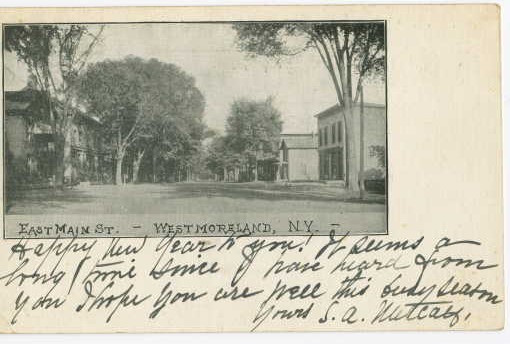 EAST MAIN ST. - WESTMORELAND, N.Y. -
Happy New Year to you! It seems a
long time since I have heard from
you I hope you are well this season
Yours S. A. Metcalf.